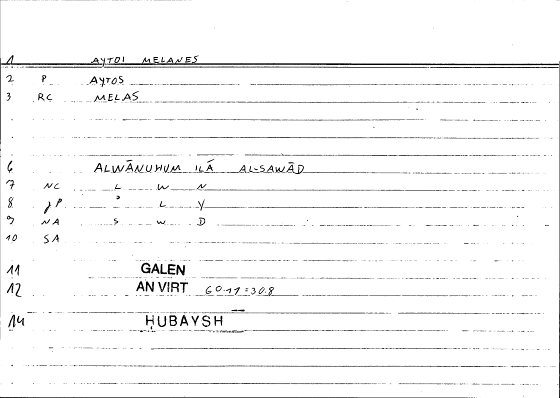 1 AYTOI MELANES
2 P AYTOS
3 RC MELAS
6 ALWĀNUHUM ILĀ AL-SAWĀD
7 NC L W N
8 P ʾ L Y
9 NA S W D
10 SA
11 GALEN
12 AN VIRT
14 ḤUBAYSH